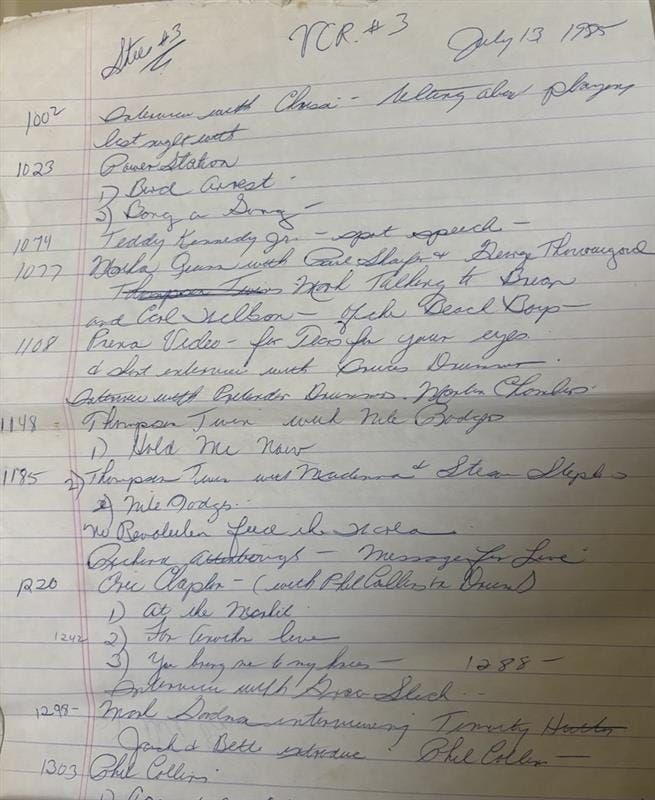 VCR. # 3
July 13 1985
1002 Interview with - talking about playing
last night with
1023 Power Station
1) Bird Arrest.
2) Bong a Song -
1074 Teddy Kennedy Jr. - spot speech -
1077 Martha Quinn with Paul Shaffer & George
Thompson Twins Mark Talking to Brian
and Carl Wilson - of the Beach Boys -
1108 Video - for for your eyes
& short interview with Drummer.
Interview with Pretender Drummer. Martin Chambers.
1148 Thompson Twin with Nile Rodgers
1) Hold Me Now
1185 2) Thompson Twin with Madonna & Steven
2) Nile Rodgers.
Revolution feed the World
Attenborough - Message for Live
1220 Eric Clapton - (with Phil Collins on Drums)
1) At the
1242 2) For Another love
3) You bring me to my knees - 1288 -
Interview with Grace Slick -
1298- Mark Goodman interviewing Timothy Hutton
Jack & Bette introduce Phil Collins -
1303 Phil Collins
1)